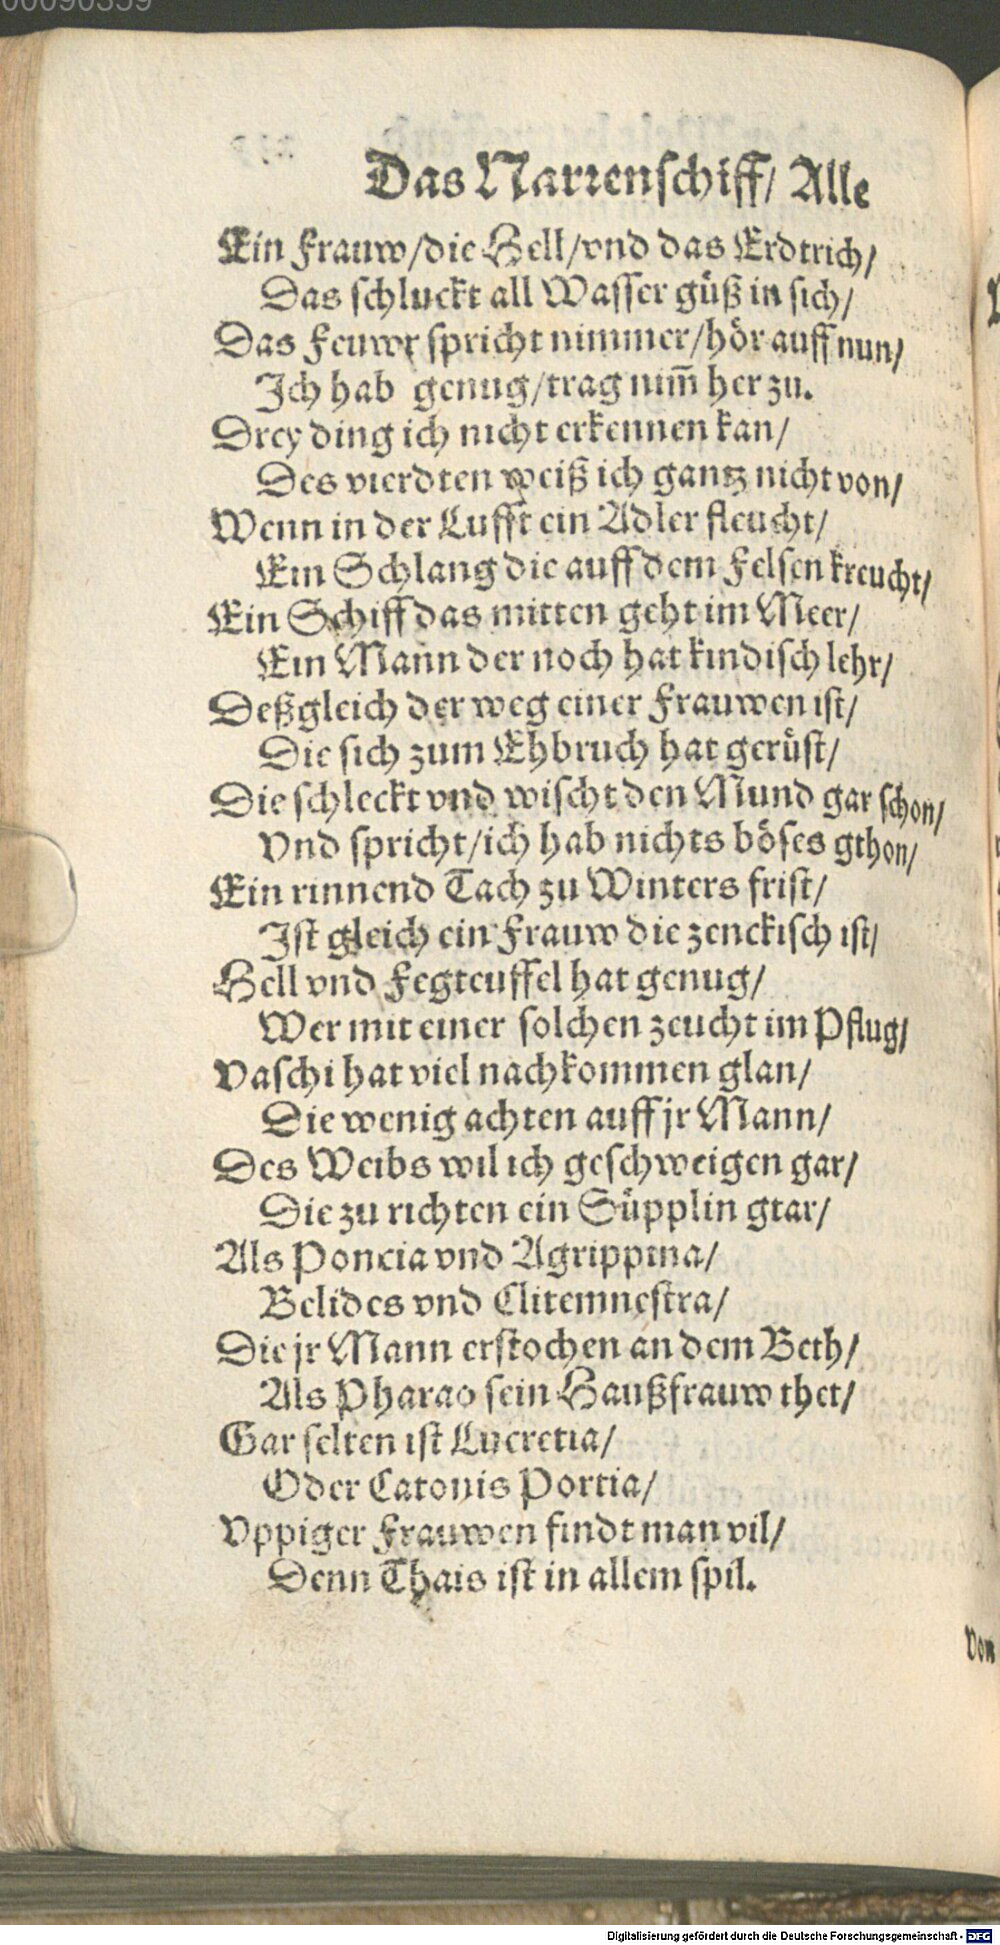 00090359
Das Narrenschiff/ Alle
Ein Frauw/die Hell/vnd das Erdtrich/
Das schluckt all Wasser güß in sich/
Das Feuwr spricht nimmer/hör auff nun/
Ich hab genug/trag nim̃ her zu.
Drey ding ich nicht erkennen kan/
Des vierdten weiß ich gantz nicht von/
Wenn in der Lufft ein Adler fleucht/
Ein Schlang die auff dem Felsen kreucht/
Ein Schiff das mitten geht im Meer/
Ein Mann der noch hat kindisch lehr/
Deßgleich der weg einer Frauwen ist/
Die sich zum Ehbruch hat gerüst/
Die schleckt vnd wischt den Mund gar schon/
Vnd spricht/ich hab nichts böses gthon/
Ein rinnend Tach zu Winters frist/
Ist gleich ein Frauw die zenckisch ist/
Hell vnd Fegteuffel hat genug/
Wer mit einer solchen zeucht im Pflug/
Vaschi hat viel nachkommen glan/
Die wenig achten auff jr Mann/
Des Weibs wil ich geschweigen gar/
Die zu richten ein Süpplin gtar/
Als Poncia vnd Agrippina/
Belides vnd Clitemnestra/
Die jr Mann erstochen an dem Beth/
Als Pharao sein Haußfrauw thet/
Gar selten ist Lucretia/
Oder Catonis Portia/
Vppiger Frauwen findt man vil/
Denn Thais ist in allem spil.
Von
Digitalisierung gefördert durch die Deutsche Forschungsgemeinschaft - DFG